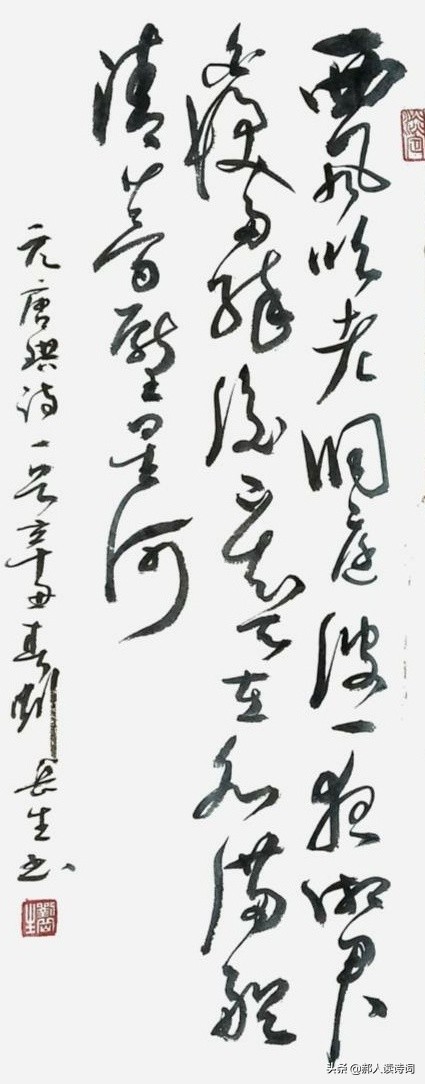 西風吹老洞庭波一夜湘君
白髮多醉後不知天在水滿船
清夢壓星河
元唐珙诗一首辛丑春劉長生书
头条 @郝人读诗词